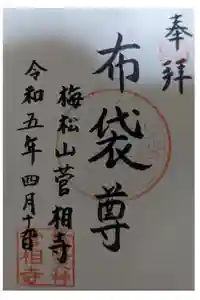 奉拝
布袋尊
梅松山菅相寺
令和五年四月十日